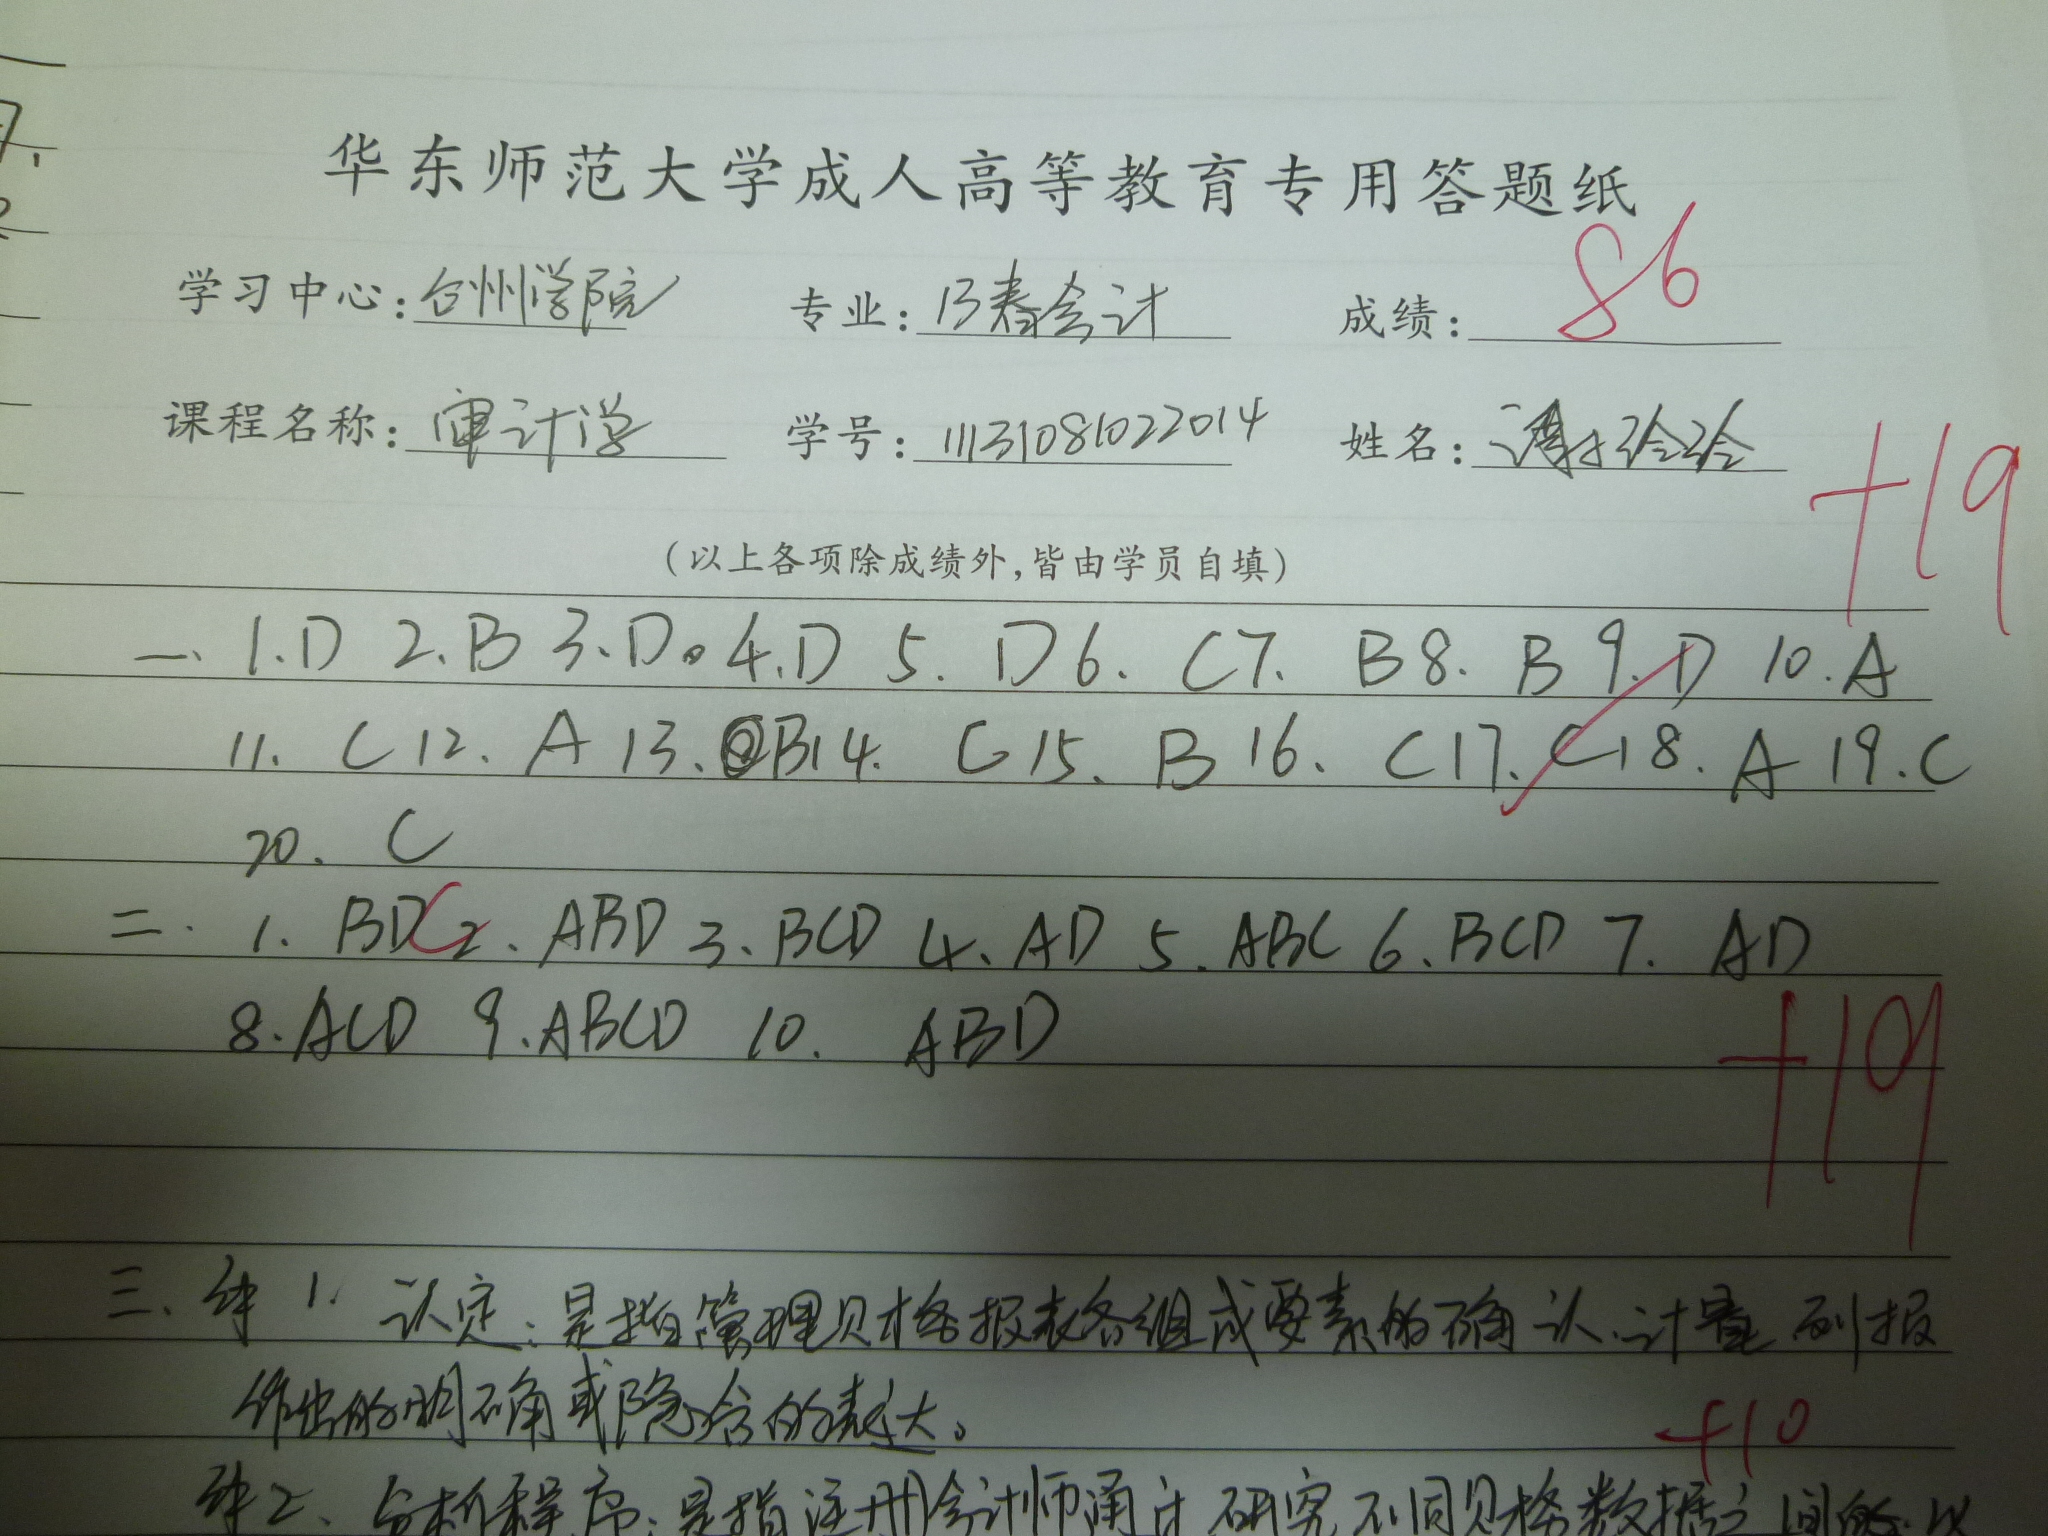 华东师范大学成人高等教育专用答题纸
学习中心:台州学院 专业:13春会计 成绩:86
课程名称:审计学 学号:11131081022014 姓名:
+19
(以上各项除成绩外,皆由学员自填)
一、1.D 2.B 3.D. 4.D 5. D 6. C 7. B 8. B 9. D 10. A
11. C 12. A 13. B 14. C 15. B 16. C 17. C 18. A 19. C
20. C
二. 1. BDC 2. ABD 3. BCD 4. AD 5. ABC 6. BCD 7. AD
8. ACD 9. ABCD 10. ABD
+19
三、 1. 认定:是指管理财务报表各组成要素的确认.计量列报
作出的明确或隐含的表达。
+10
2、分析程序:是指注册会计师通过研究不同财务数据之间的以